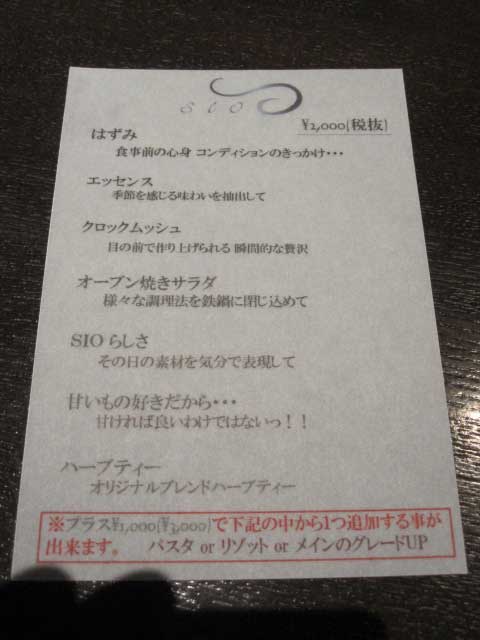 SIO
¥2,000[税抜]
はずみ
食事前の心身 コンディションのきっかけ・・・
エッセンス
季節を感じる味わいを抽出して
クロックムッシュ
目の前で作り上げられる 瞬間的な贅沢
オーブン焼きサラダ
様々な調理法を鉄鍋に閉じ込めて
SIO らしさ
その日の素材を気分で表現して
甘いもの好きだから・・・
甘ければ良いわけではないっ！！
ハーブティー
オリジナルブレンドハーブティー
※プラス¥1,000[¥3,000]で下記の中から1つ追加する事が
出来ます。 パスタ or リゾット or メインのグレードUP